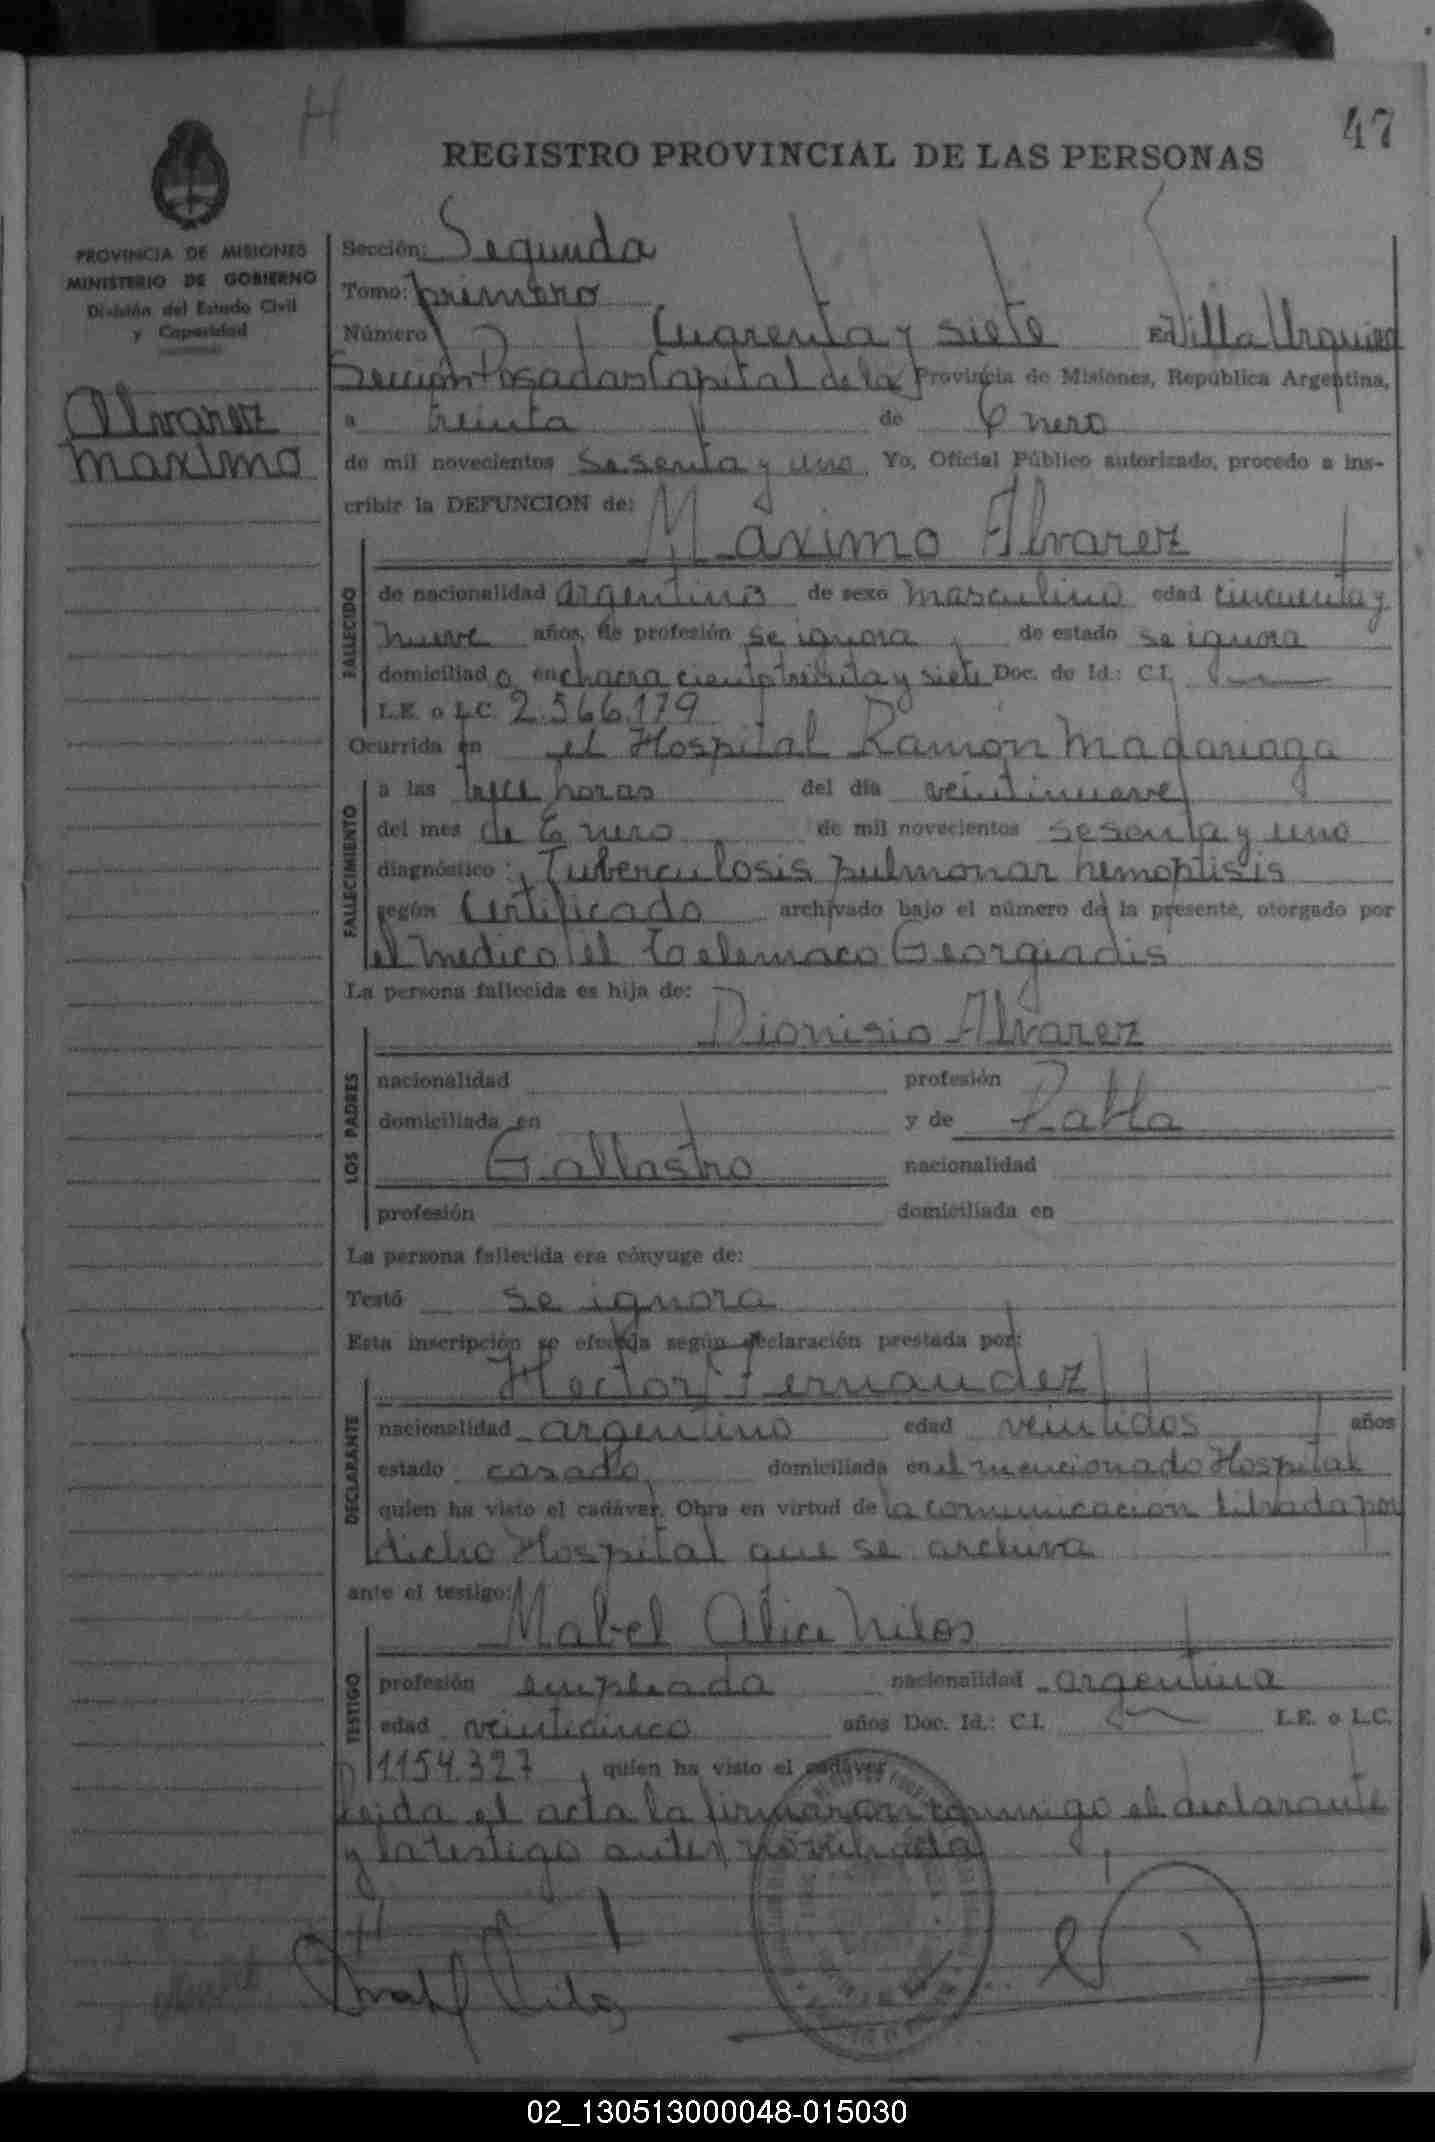 47
H
REGISTRO PROVINCIAL DE LAS PERSONAS
PROVINCIA DE MISIONES
MINISTERIO DE GOBIERNO
División del Estado Civil
y Capacidad
Alvarez
maximo
Sección: Segunda
Tomo: primero
Número Cuarenta y siete En Villa Urquiza
Sección Posadas Capital de la Provincia de Misiones, República Argentina,
a treinta de Enero
de mil novecientos sesenta y uno Yo, Oficial Público autorizado, procedo a ins-
cribir la DEFUNCION de:
Máximo Alvarez
FALLECIDO
de nacionalidad argentino de sexo masculino edad cincuenta y
nueve años, de profesión se ignora de estado se ignora
domiciliado en chacra ciento treinta y siete Doc. de Id.: C.I.
L.E. o L.C. 2.566.179
Ocurrida en el Hospital Ramón Madariaga
FALLECIMIENTO
a las trece horas del día veintinueve
del mes de Enero de mil novecientos sesenta y uno
diagnóstico: Tuberculosis pulmonar hemoptisis
según Certificado archivado bajo el número de la presente, otorgado por
el medico el Telemaco Georgiadis
La persona fallecida es hija de:
Dionisio Alvarez
LOS PADRES
nacionalidad profesión
domiciliada en y de Pabla
Gallastro nacionalidad
profesión domiciliada en
La persona fallecida era cónyuge de:
Testó se ignora
Esta inscripción se efectúa según declaración prestada por:
Hector Fernandez
DECLARANTE
nacionalidad argentino edad veintidos años
estado casado domiciliada en el mencionado Hospital
quien ha visto el cadáver. Obra en virtud de la comunicacion librada por
dicho Hospital que se archiva
ante el testigo:
Mabel Alice Nilos
TESTIGO
profesión empleada nacionalidad argentina
edad veinticinco años Doc. Id.: C.I. L.E. o L.C.
1154.327 quien ha visto el cadáver
Leida el acta la firmaron conmigo el declarante
y la testigo antes nombrada
02_130513000048-015030